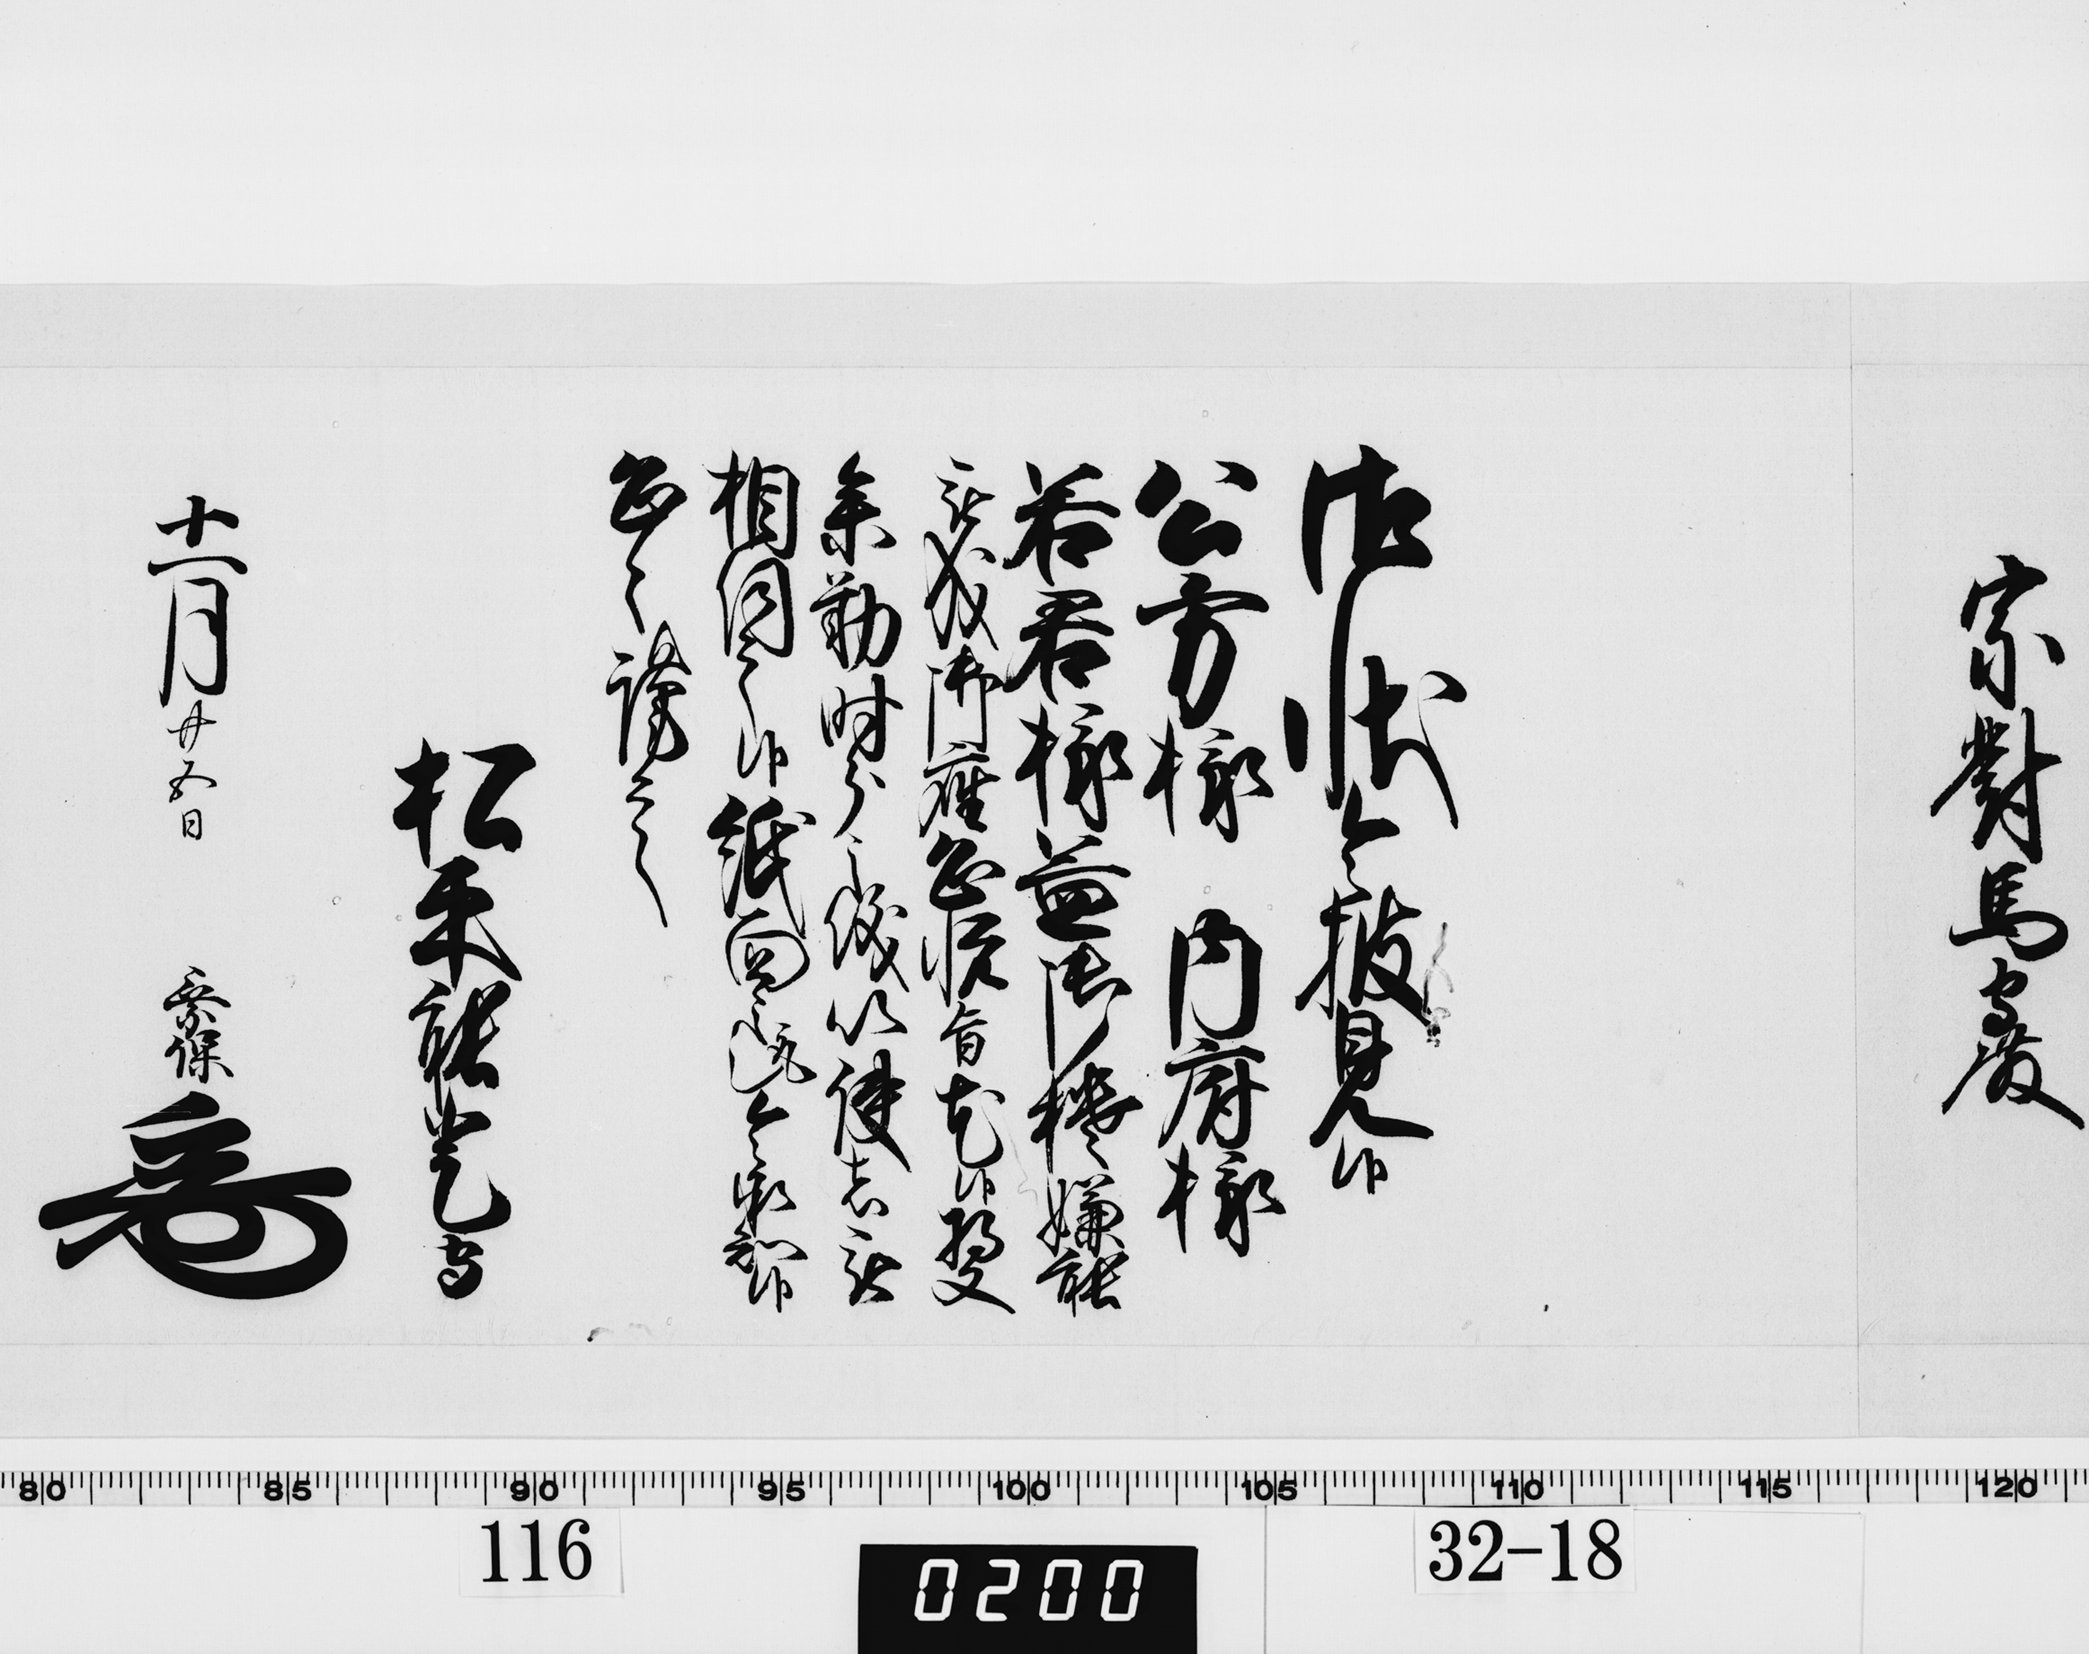 宗對馬守殿
御状令披見候
公方様 内府様
若君様益御機嫌能
被成御座恐悦旨尤候将又
参勤時分之儀以使者被
相伺之候紙面之趣令承知候
恐々謹言
松平能登守
十一月廿五日 乗保
80 85 90 95 100 105 110 115 120
116
0200
32-18